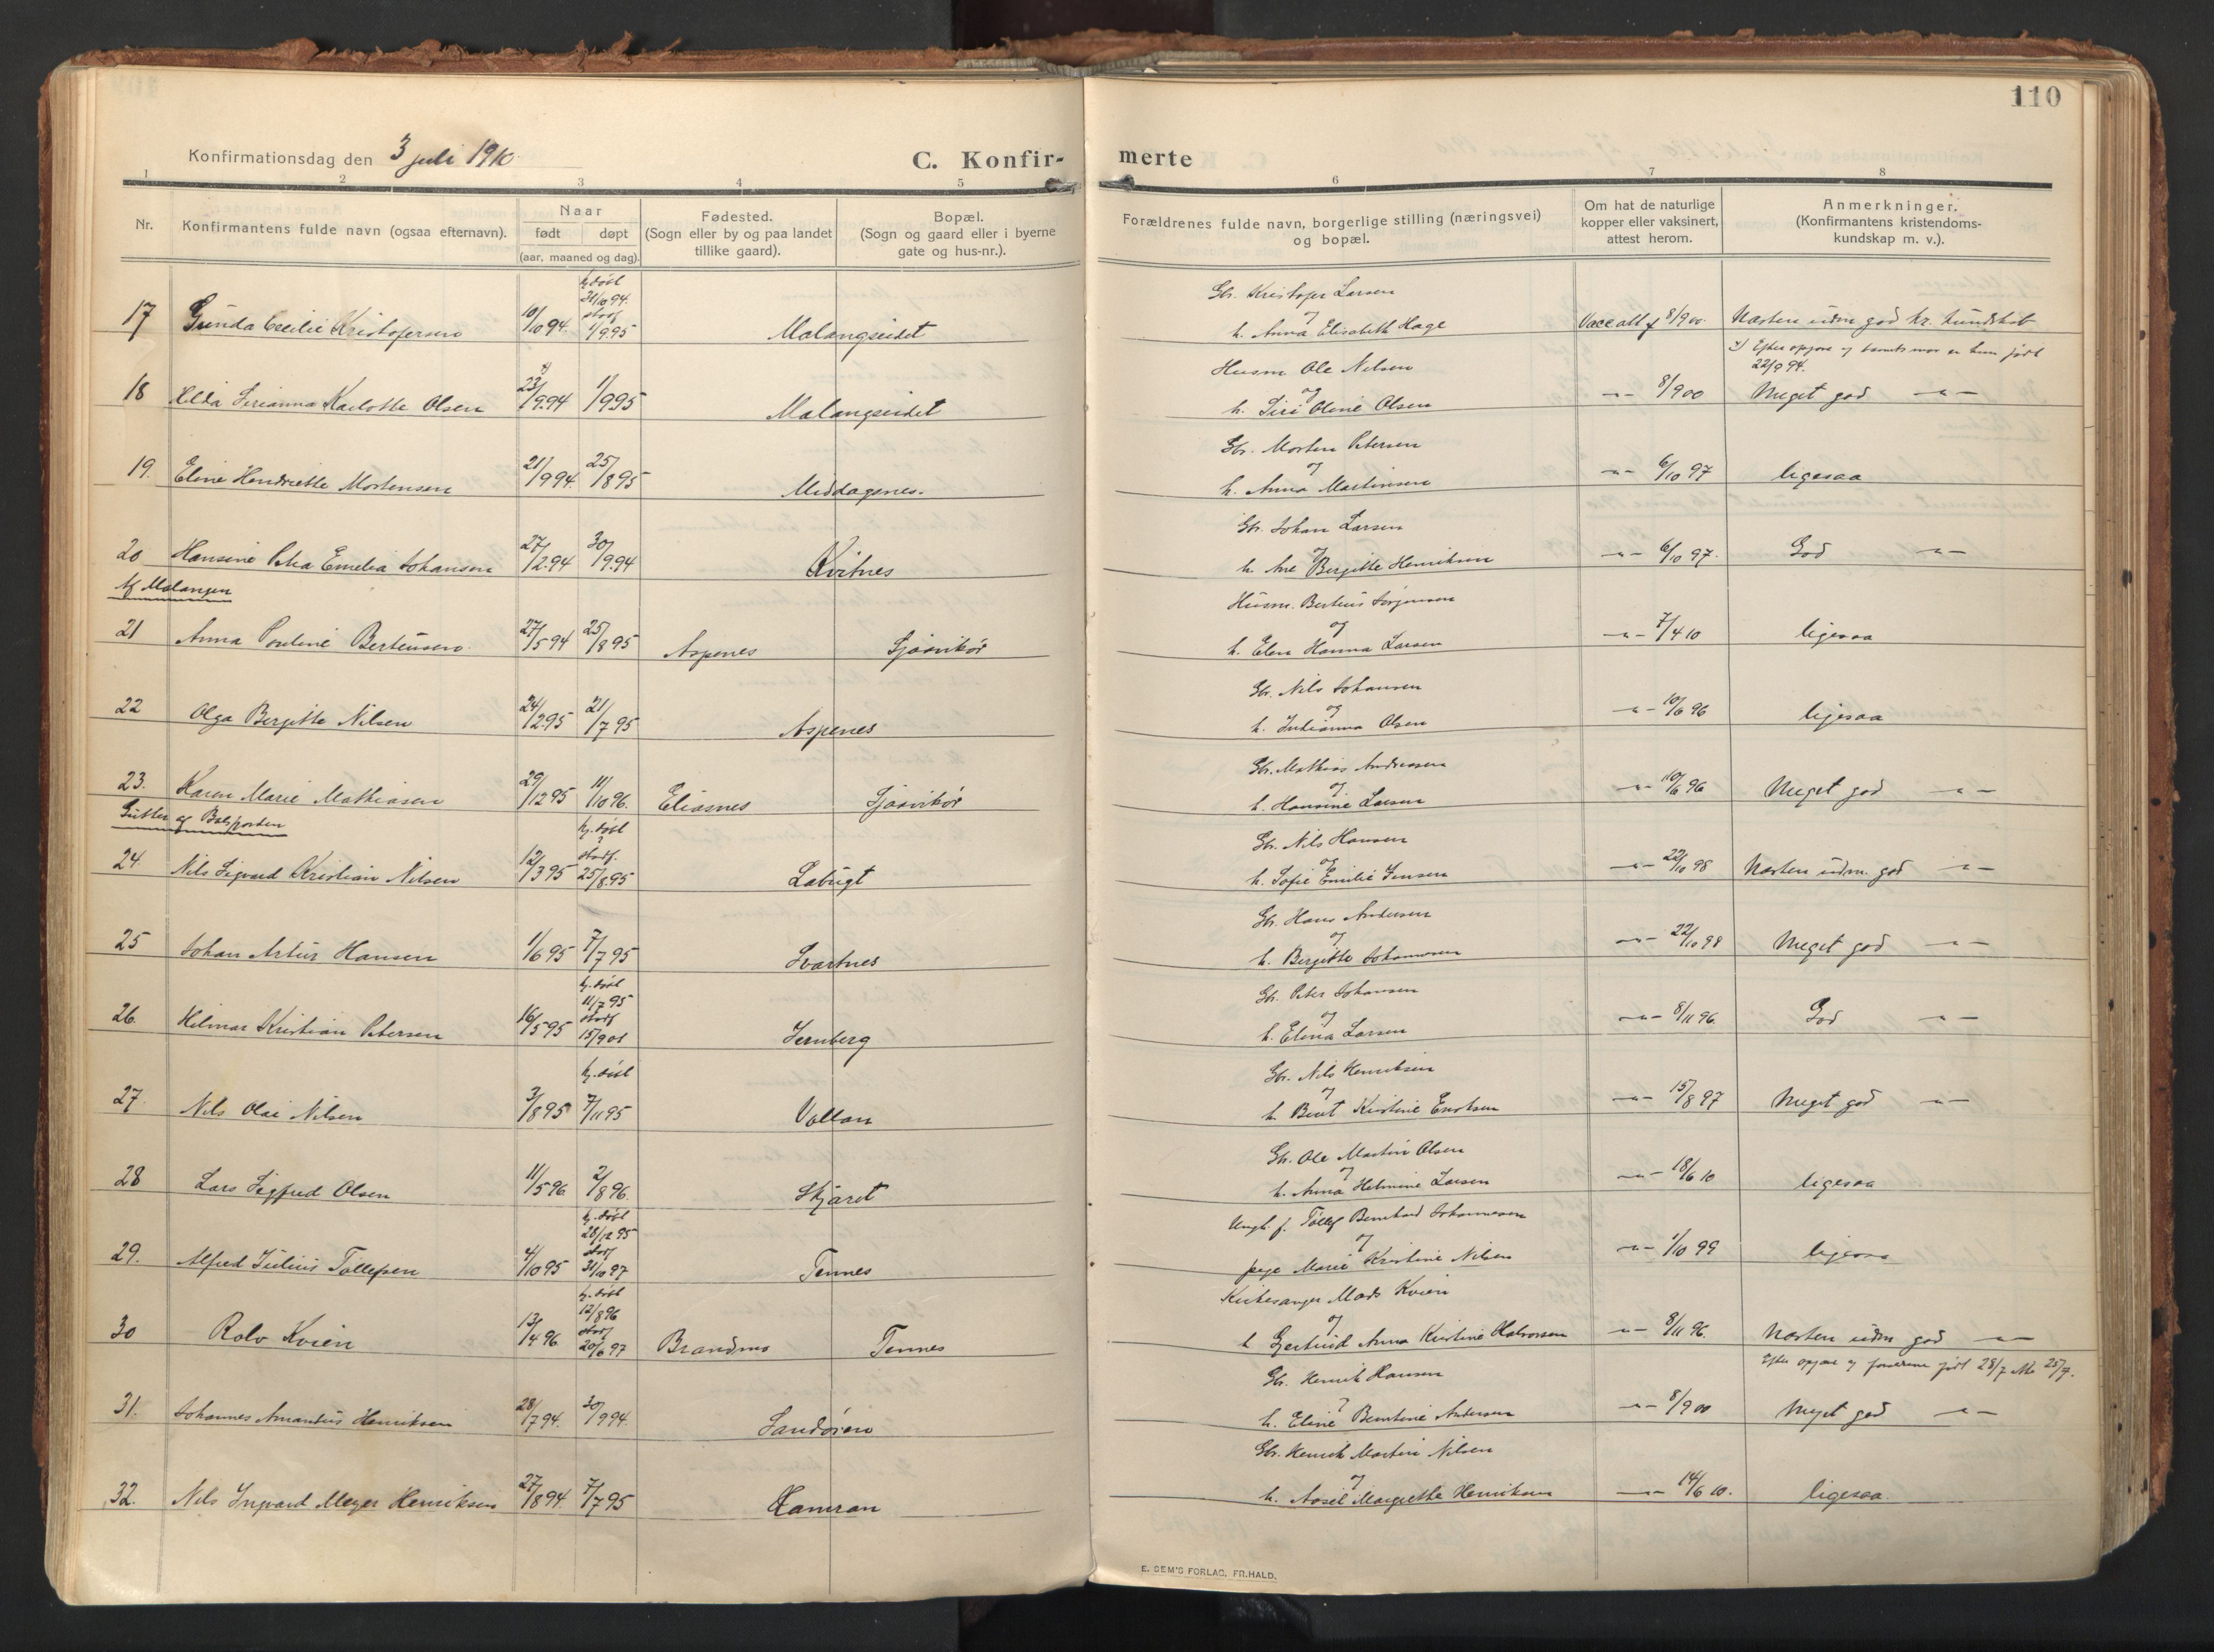 110
Konfirmationsdag den 3 juli 1910.
C. Konfirmerte
1 2 3 4 5 6 7 8
Nr. Konfirmantens fulde navn (ogsaa efternavn). Naar født døpt (aar, maaned og dag). Fødested. (Sogn eller by og paa landet tillike gaard). Bopæl. (Sogn og gaard eller i byerne gate og hus-nr.). Forældrenes fulde navn, borgerlige stilling (næringsvei) og bopæl. Om hat de naturlige kopper eller vaksinert, attest herom. Anmerkninger. (Konfirmantens kristendoms-kundskap m. v.).
17 Gunda Cecilie Kristofersen 10/10 94. hj. døbt 31/10 94. stadf 1/9 95 Malangseidet Gbr. Kristofer Larsen og h. Anna Elisabeth Hage Vacc att f 8/9 00. Næsten udm god kr. kundskab
18 Hilda Sirianna Karlotte Olsen x) 23/9 94 1/9 95 Malangseidet Husm Ole Nilsen og h. Siri Oline Olsen -"- 8/9 00 x) Efter opgave og barnets mor er hun født 22/9 94. Meget god -"-
19. Eline Hendrikke Mortensen 21/9 94. 25/8 95 Middagsnes. Gbr. Morten Petersen og h. Anna Martinsen -"- 6/10 97 ligesaa
20 Hansine Petra Emelia Johansen 27/2 94 30/9 94 Kvitnes Gbr. Johan Larsen og h. Ane Bergitte Henriksen -"- 6/10 97. God -"-
Af Malangen
21 Anna Pauline Bertensen 27/5 94 25/8 95 Aspenes Sjaavikør Husm. Bertius Jørgensen og h. Elen Hanna Larsen -"- 7/4 10 ligesaa
22 Olga Bergitte Nilsen 24/2 95 21/7 95 Aspenes Gbr. Nils Johansen og h. Julianna Olsen -"- 10/6 96 ligesaa
23. Karen Marie Mathiasen 29/12 95 11/10 96. Eliasnes Sjaavikør Gbr. Mathias Andreasen og h. Hansine Larsen -"- 10/6 96 Meget god -"-
Gutter af Balsfjorden
24. Nils Sigvard Kristian Nilsen 12/3 95 hj. døbt ? stadf. 25/8 95 Labugt Gbr. Nils Hansen og h. Sofie Emilie Jensen -"- 22/10 98 Næsten udm. god -"-
25 Johan Artur Hansen 1/6 95 7/7 95 Svartnes Gbr. Hans Andersen og h. Bergitte Johannesen -"- 22/10 98 Meget god -"-
26. Hilmar Kristian Petersen 16/5 95 hj. døbt 11/7 95 stadf 15/9 01 Jernberg Gbr. Peter Johansen og h. Elena Larsen -"- 8/11 96. God -"-
27. Nils Olai Nilsen 3/8 95 hj. døbt 7/11 95 Vollan Gbr. Nils Henriksen og h Berit Kristine Enoksen -"- 15/8 97 Meget god -"-
28 Lars Sigfred Olsen 11/5 96 2/8 96. Skjæret Gbr. Ole Martin Olsen og h. Anna Helmine Larsen -"- 18/6 10 ligesaa
29. Alfred Julius Tollefsen 4/10 95 hj. døbt 28/12 95 stadf 31/10 97 Tennes Ungk. f. Tollef Bernhard Johannesen og pige Marie Kristine Nilsen -"- 1/10 99 ligesaa
30 Rolv Kvien 13/4 96 hj. døbt 12/8 96 stadf 20/6 97 Brandmo Tennes Kirkesanger Mads Kvien og h Gertrud Anna Kristine Halvorsen -"- 8/11 96. Næsten udm god -"-
31. Johannes Amantius Henriksen 28/7 94. 30/9 94. Sandøren Gbr. Henrik Hansen og h. Eline Berntine Andersen -"- 8/9 00 Efter opgave og forældrene født 28/7 ikke 25/7. Meget god -"-
32. Nils Ingvard Meyer Henriksen 27/8 94. 7/7 95 Hamran Gbr. Henrik Martin Nilsen og h. Assel Margrethe Henriksen -"- 14/6 10. ligesaa.
E. SEM'S FORLAG, FR.HALD.